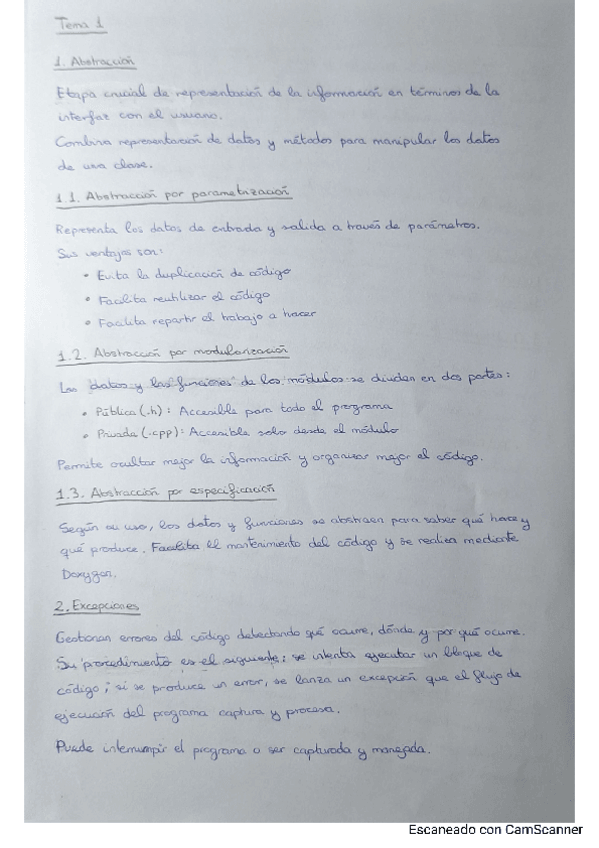 Tema 1
1. Abstracción
Etapa crucial de representación de la información en términos de la
interfaz con el usuario.
Combina representación de datos y métodos para manipular los datos
de una clase.
1.1. Abstracción por parametrización
Representa los datos de entrada y salida a través de parámetros.
Sus ventajas son:
• Evita la duplicación de código
• Facilita reutilizar el código
• Facilita repartir el trabajo a hacer
1.2. Abstracción por modularización
Los datos y las funciones de los módulos se dividen en dos partes:
• Pública (.h): Accesible para todo el programa
• Privada (.cpp): Accesible solo desde el módulo
Permite ocultar mejor la información y organizar mejor el código.
1.3. Abstracción por especificación
Según su uso, los datos y funciones se abstraen para saber qué hace y
qué produce. Facilita el mantenimiento del código y se realiza mediante
Doxygen.
2. Excepciones
Gestionan errores del código detectando qué ocurre, dónde y por qué ocurre.
Su procedimiento es el siguiente: se intenta ejecutar un bloque de
código; si se produce un error, se lanza un excepción que el flujo de
ejecución del programa captura y procesa.
Puede interrumpir el programa o ser capturada y manejada.
Escaneado con CamScanner